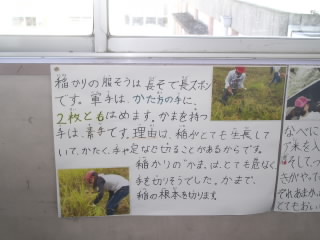 稲かりの服そうは長そで長ズボン
です。軍手は、かた方の手に、
2枚ともはめます。かまを持つ
手は、素手です。理由は、稲がとても生長して
いて、かたく、手や足など切ることがあるからです。
稲かりの"かま"は、とても危なく、
手を切りそうでした。かまで、
稲の根本を切ります。
なべに
ア米を入
そして